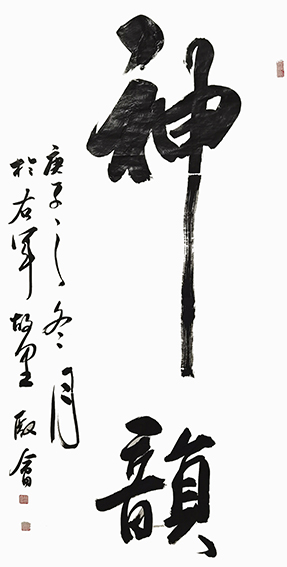 神韻
庚子之冬月
於右軍故里